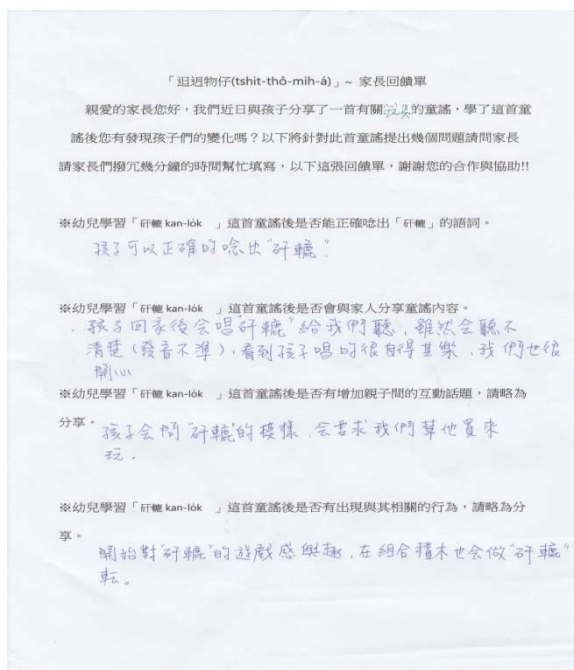 「𨑨迌物仔(tshit-thô-mih-á)」~ 家長回饋單
親愛的家長您好，我們近日與孩子分享了一首有關玩具的童謠，學了這首童
謠後您有發現孩子們的變化嗎？以下將針對此首童謠提出幾個問題請問家長
請家長們撥冗幾分鐘的時間幫忙填寫，以下這張回饋單，謝謝您的合作與協助!!
※幼兒學習「矸轆 kan-lo̍k 」這首童謠後是否能正確唸出「矸轆」的語詞。
孩子可以正確的唸出"矸轆"
※幼兒學習「矸轆 kan-lo̍k 」這首童謠後是否會與家人分享童謠內容。
孩子回家後会唱"矸轆"給我們聽，雖然会聽不
清楚(發音不準)，看到孩子唱的很自得其樂，我們也很
開心
※幼兒學習「矸轆 kan-lo̍k 」這首童謠後是否有增加親子間的互動話題，請略為
分享。
孩子会問"矸轆"的模樣，会要求我們幫他買來
玩。
※幼兒學習「矸轆 kan-lo̍k 」這首童謠後是否有出現與其相關的行為，請略為分
享。
開始對"矸轆"的遊戲感興趣，在組合積木也会做"矸轆"
転。